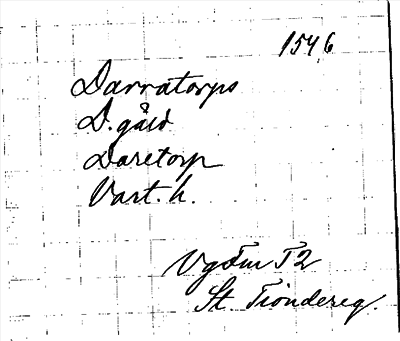 1546
Darratorps
D. gård
Daretorp
Vart. h.
Vg Tiu T2
St. Tiondereg.